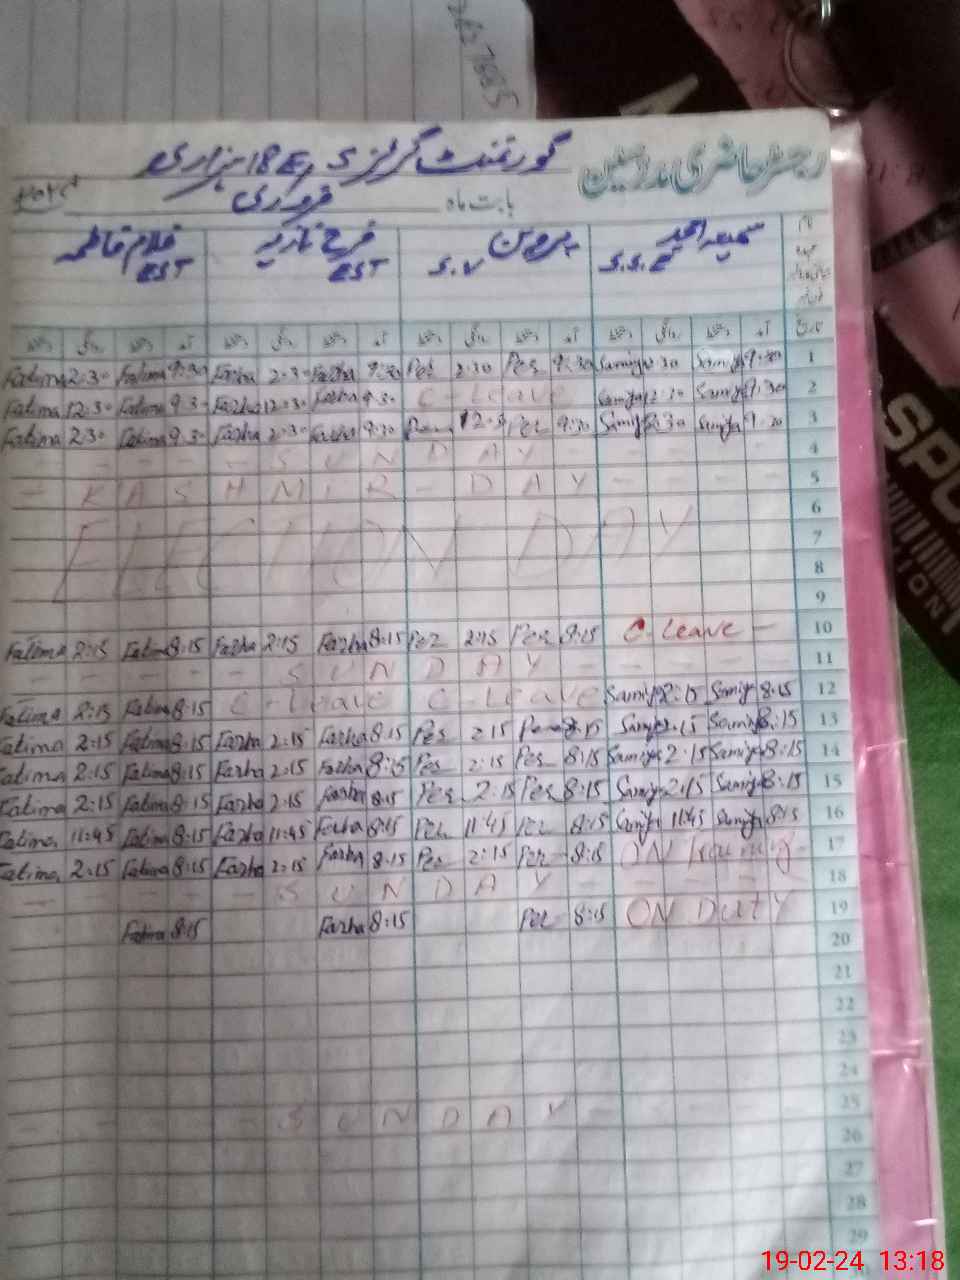 رجسٹر حاضری مدرسین گورنمنٹ گرلز E/S 18 ہزاری
بابت ماہ فروری
نام
سمیعہ امجد پروین فرح نازیہ غلام فاطمہ
S.S.E S.V EST EST
تاریخ آمد دستخط روانگی دستخط آمد دستخط روانگی دستخط آمد دستخط روانگی دستخط آمد دستخط روانگی دستخط
Fatima 2:30 Fatima 9:30 Farha 2:30 Farha 9:30 Per 2:30 Per 9:30 Samiya 2:30 Samiya 9:30 1
Fatima 12:30 Fatima 9:30 Farha 12:30 Farha 9:30 C - Leave Samiya 12:30 Samiya 9:30 2
Fatima 2:30 Fatima 9:30 Farha 2:30 Farha 9:30 Per 12:30 Per 9:30 Samiya 2:30 Samiya 9:30 3
- - - - - S U N D A Y - - - - 4
- K A S H M I R - D A Y - - - - 5
6
ELECTION DAY 7
8
9
Fatima 2:15 Fatima 8:15 Farha 2:15 Farha 8:15 Per 2:15 Per 8:15 C- Leave - 10
- - - - - S U N D A Y - - - - 11
Fatima 2:15 Fatima 8:15 C - Leave C - Leave Samiya 2:15 Samiya 8:15 12
Fatima 2:15 Fatima 8:15 Farha 2:15 Farha 8:15 Per 2:15 Per 8:15 Samiya 2:15 Samiya 8:15 13
Fatima 2:15 Fatima 8:15 Farha 2:15 Farha 8:15 Per 2:15 Per 8:15 Samiya 2:15 Samiya 8:15 14
Fatima 2:15 Fatima 8:15 Farha 2:15 Farha 8:15 Per 2:15 Per 8:15 Samiya 2:15 Samiya 8:15 15
Fatima 11:45 Fatima 8:15 Farha 11:45 Farha 8:15 Per 11:45 Per 8:15 Samiya 11:45 Samiya 8:15 16
Fatima 2:15 Fatima 8:15 Farha 2:15 Farha 8:15 Per 2:15 Per 8:15 ON 17
- - - - - S U N D A Y - - - - 18
Fatima 8:15 Farha 8:15 Per 8:15 ON DUTY 19
20
21
22
23
24
- - - - - S U N D A Y - - - - 25
26
27
28
29
19-02-24 13:18